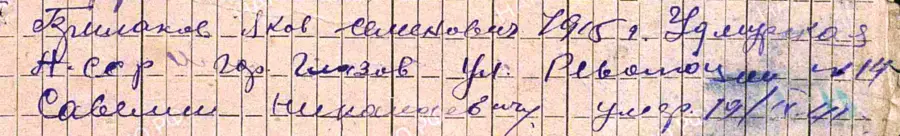 Бушмаков Яков Семенович 1915 г. Удмурская
А.ССР гор Глазов ул. Революции № 14
Савелии Никанаевичу умер. 19/IX 41